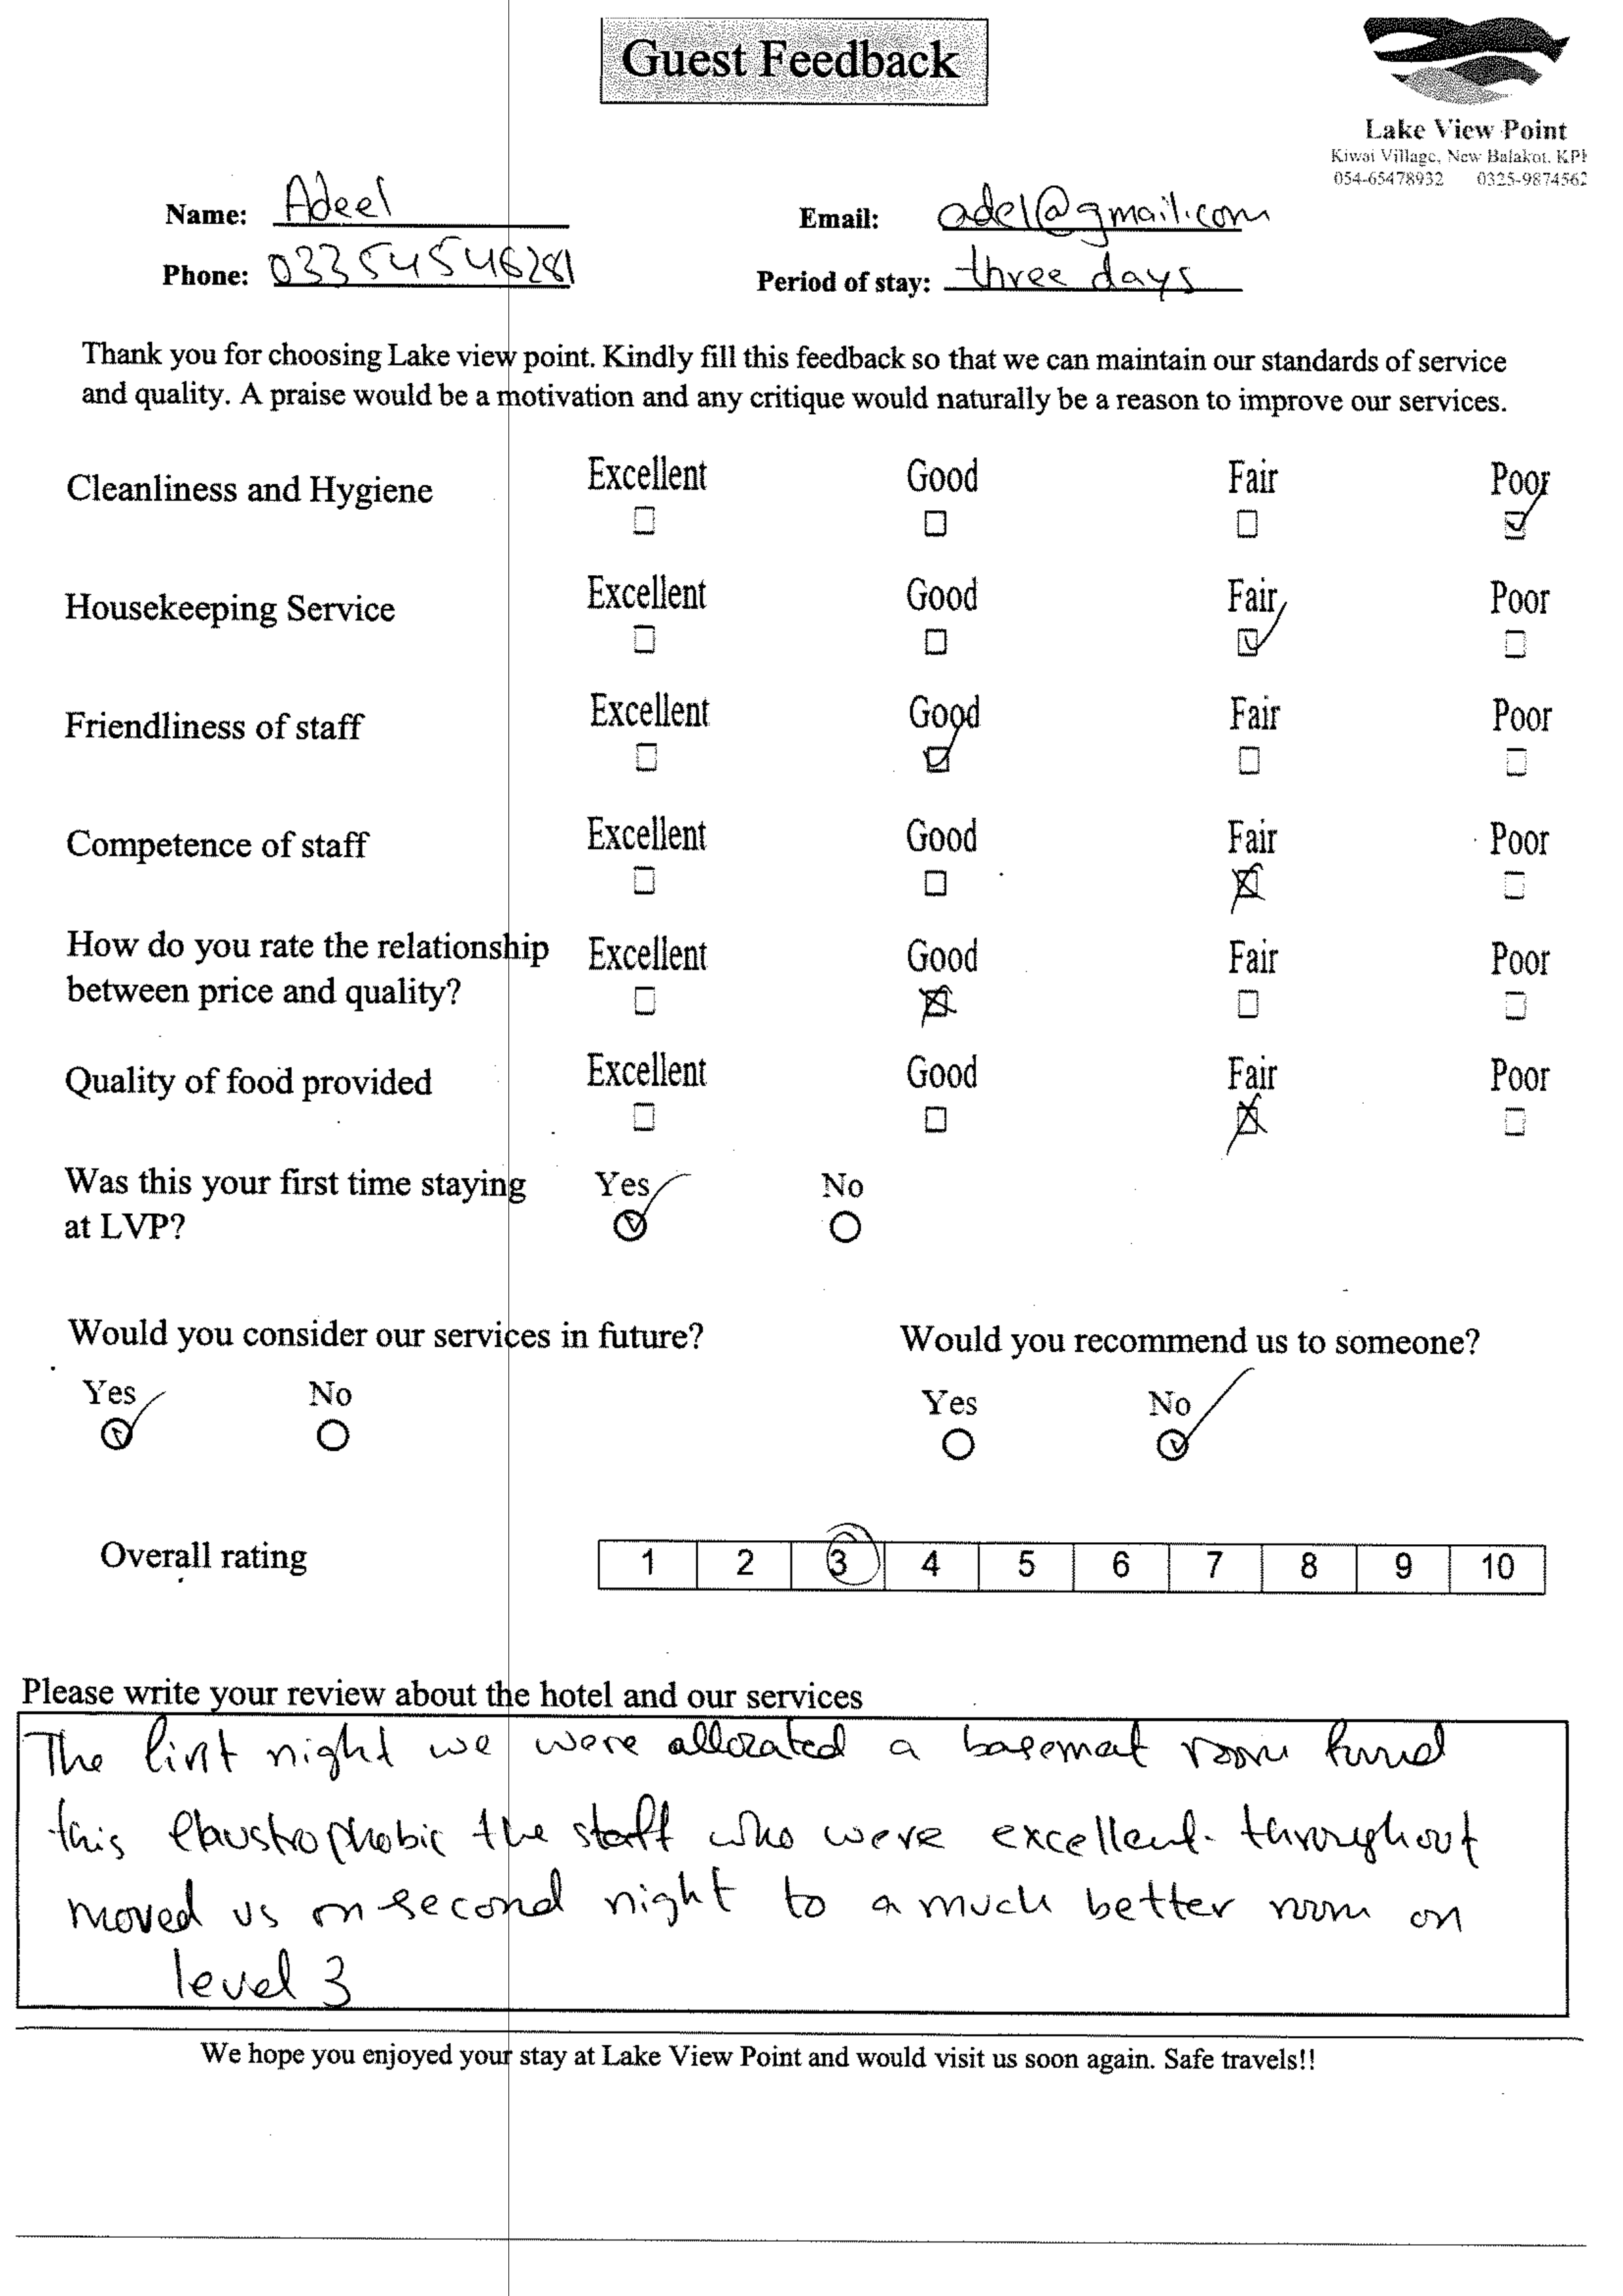 Guest Feedback
Lake View Point
Kiwai Village, New Balakot, KPK
054-65478932 0325-9874562
Name: Adeel
Email: adel@gmail.com
Phone: 03354546281
Period of stay: three days
Thank you for choosing Lake view point. Kindly fill this feedback so that we can maintain our standards of service
and quality. A praise would be a motivation and any critique would naturally be a reason to improve our services.
Cleanliness and Hygiene Excellent Good Fair Poor
Housekeeping Service Excellent Good Fair Poor
Friendliness of staff Excellent Good Fair Poor
Competence of staff Excellent Good Fair Poor
How do you rate the relationship
between price and quality? Excellent Good Fair Poor
Quality of food provided Excellent Good Fair Poor
Was this your first time staying
at LVP? Yes No
Would you consider our services in future?
Yes No
Would you recommend us to someone?
Yes No
Overall rating 1 2 3 4 5 6 7 8 9 10
Please write your review about the hotel and our services
The first night we were allocated a basement room found
this claustrophobic the staff who were excellent throughout
moved us on second night to a much better room on
level 3
We hope you enjoyed your stay at Lake View Point and would visit us soon again. Safe travels!!